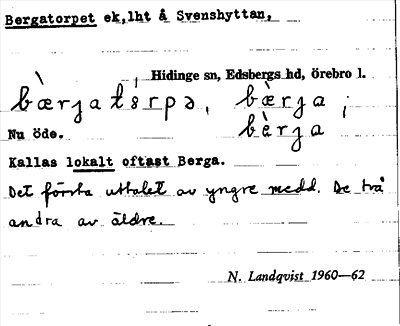 Bergatorpet ek,lht å Svenshyttan,
Hidinge sn, Edsbergs hd, örebro l.
bæ̀rjatórpə, bæ̀rja;
bèrja
Nu öde.
Kallas lokalt oftast Berga.
Det första uttalet av yngre medd. De två
andra av äldre.
N. Landqvist 1960—62